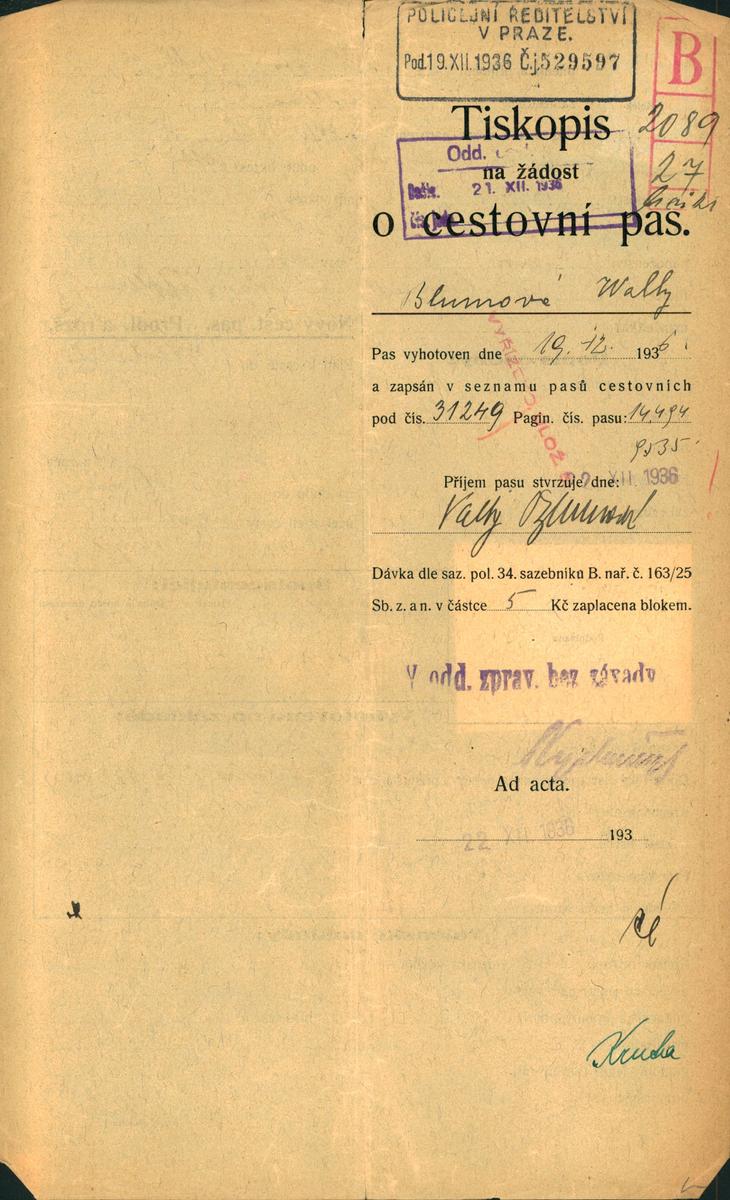 POLICEJNÍ ŘEDITELSTVÍ
V PRAZE.
Pod. 19. XII. 1936 Č.j. 529597
B
Tiskopis
2089
Odd.
na žádost
27
Došlo: 21. XII. 1936
o cestovní pas.
Blumové Wally
Pas vyhotoven dne 19. 12. 1936.
a zapsán v seznamu pasů cestovních
pod čís. 31249 Pagin. čís. pasu: 14.494
9535
Příjem pasu stvrzuje dne: 22 XII 1936
Vally
Dávka dle saz. pol. 34. sazebníku B. nař. č. 163/25
Sb. z. a n. v částce 5 Kč zaplacena blokem.
V odd. zprav. bez závady
Ad acta.
22 XII 1936 193